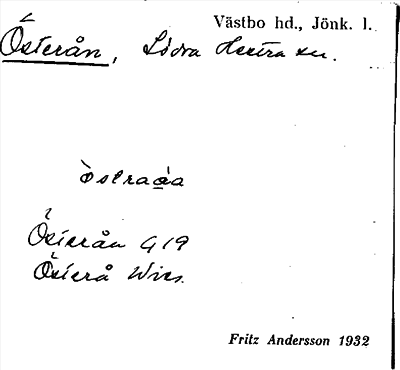 Västbo hd., Jönk. l.
Österån, Södra Hestra sn.
òstraåa
Österån G19
Österå Wies.
Fritz Andersson 1932